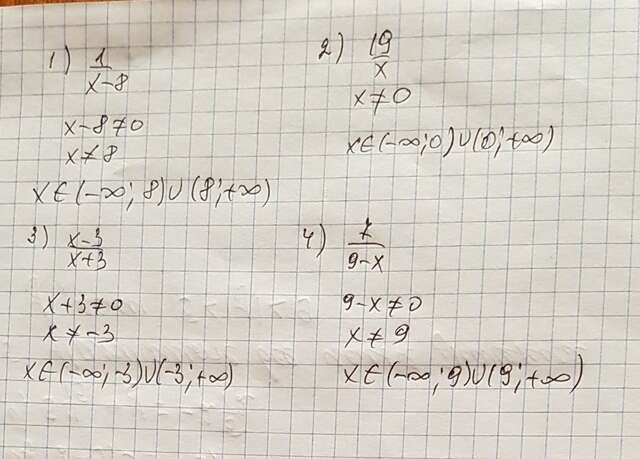 1) 1/(x-8)
x-8≠0
x≠8
x∈(-∞; 8)∪(8; +∞)
2) 19/x
x≠0
x∈(-∞; 0)∪(0; +∞)
3) (x-3)/(x+3)
x+3≠0
x≠-3
x∈(-∞; -3)∪(-3; +∞)
4) 7/(9-x)
9-x≠0
x≠9
x∈(-∞; 9)∪(9; +∞)